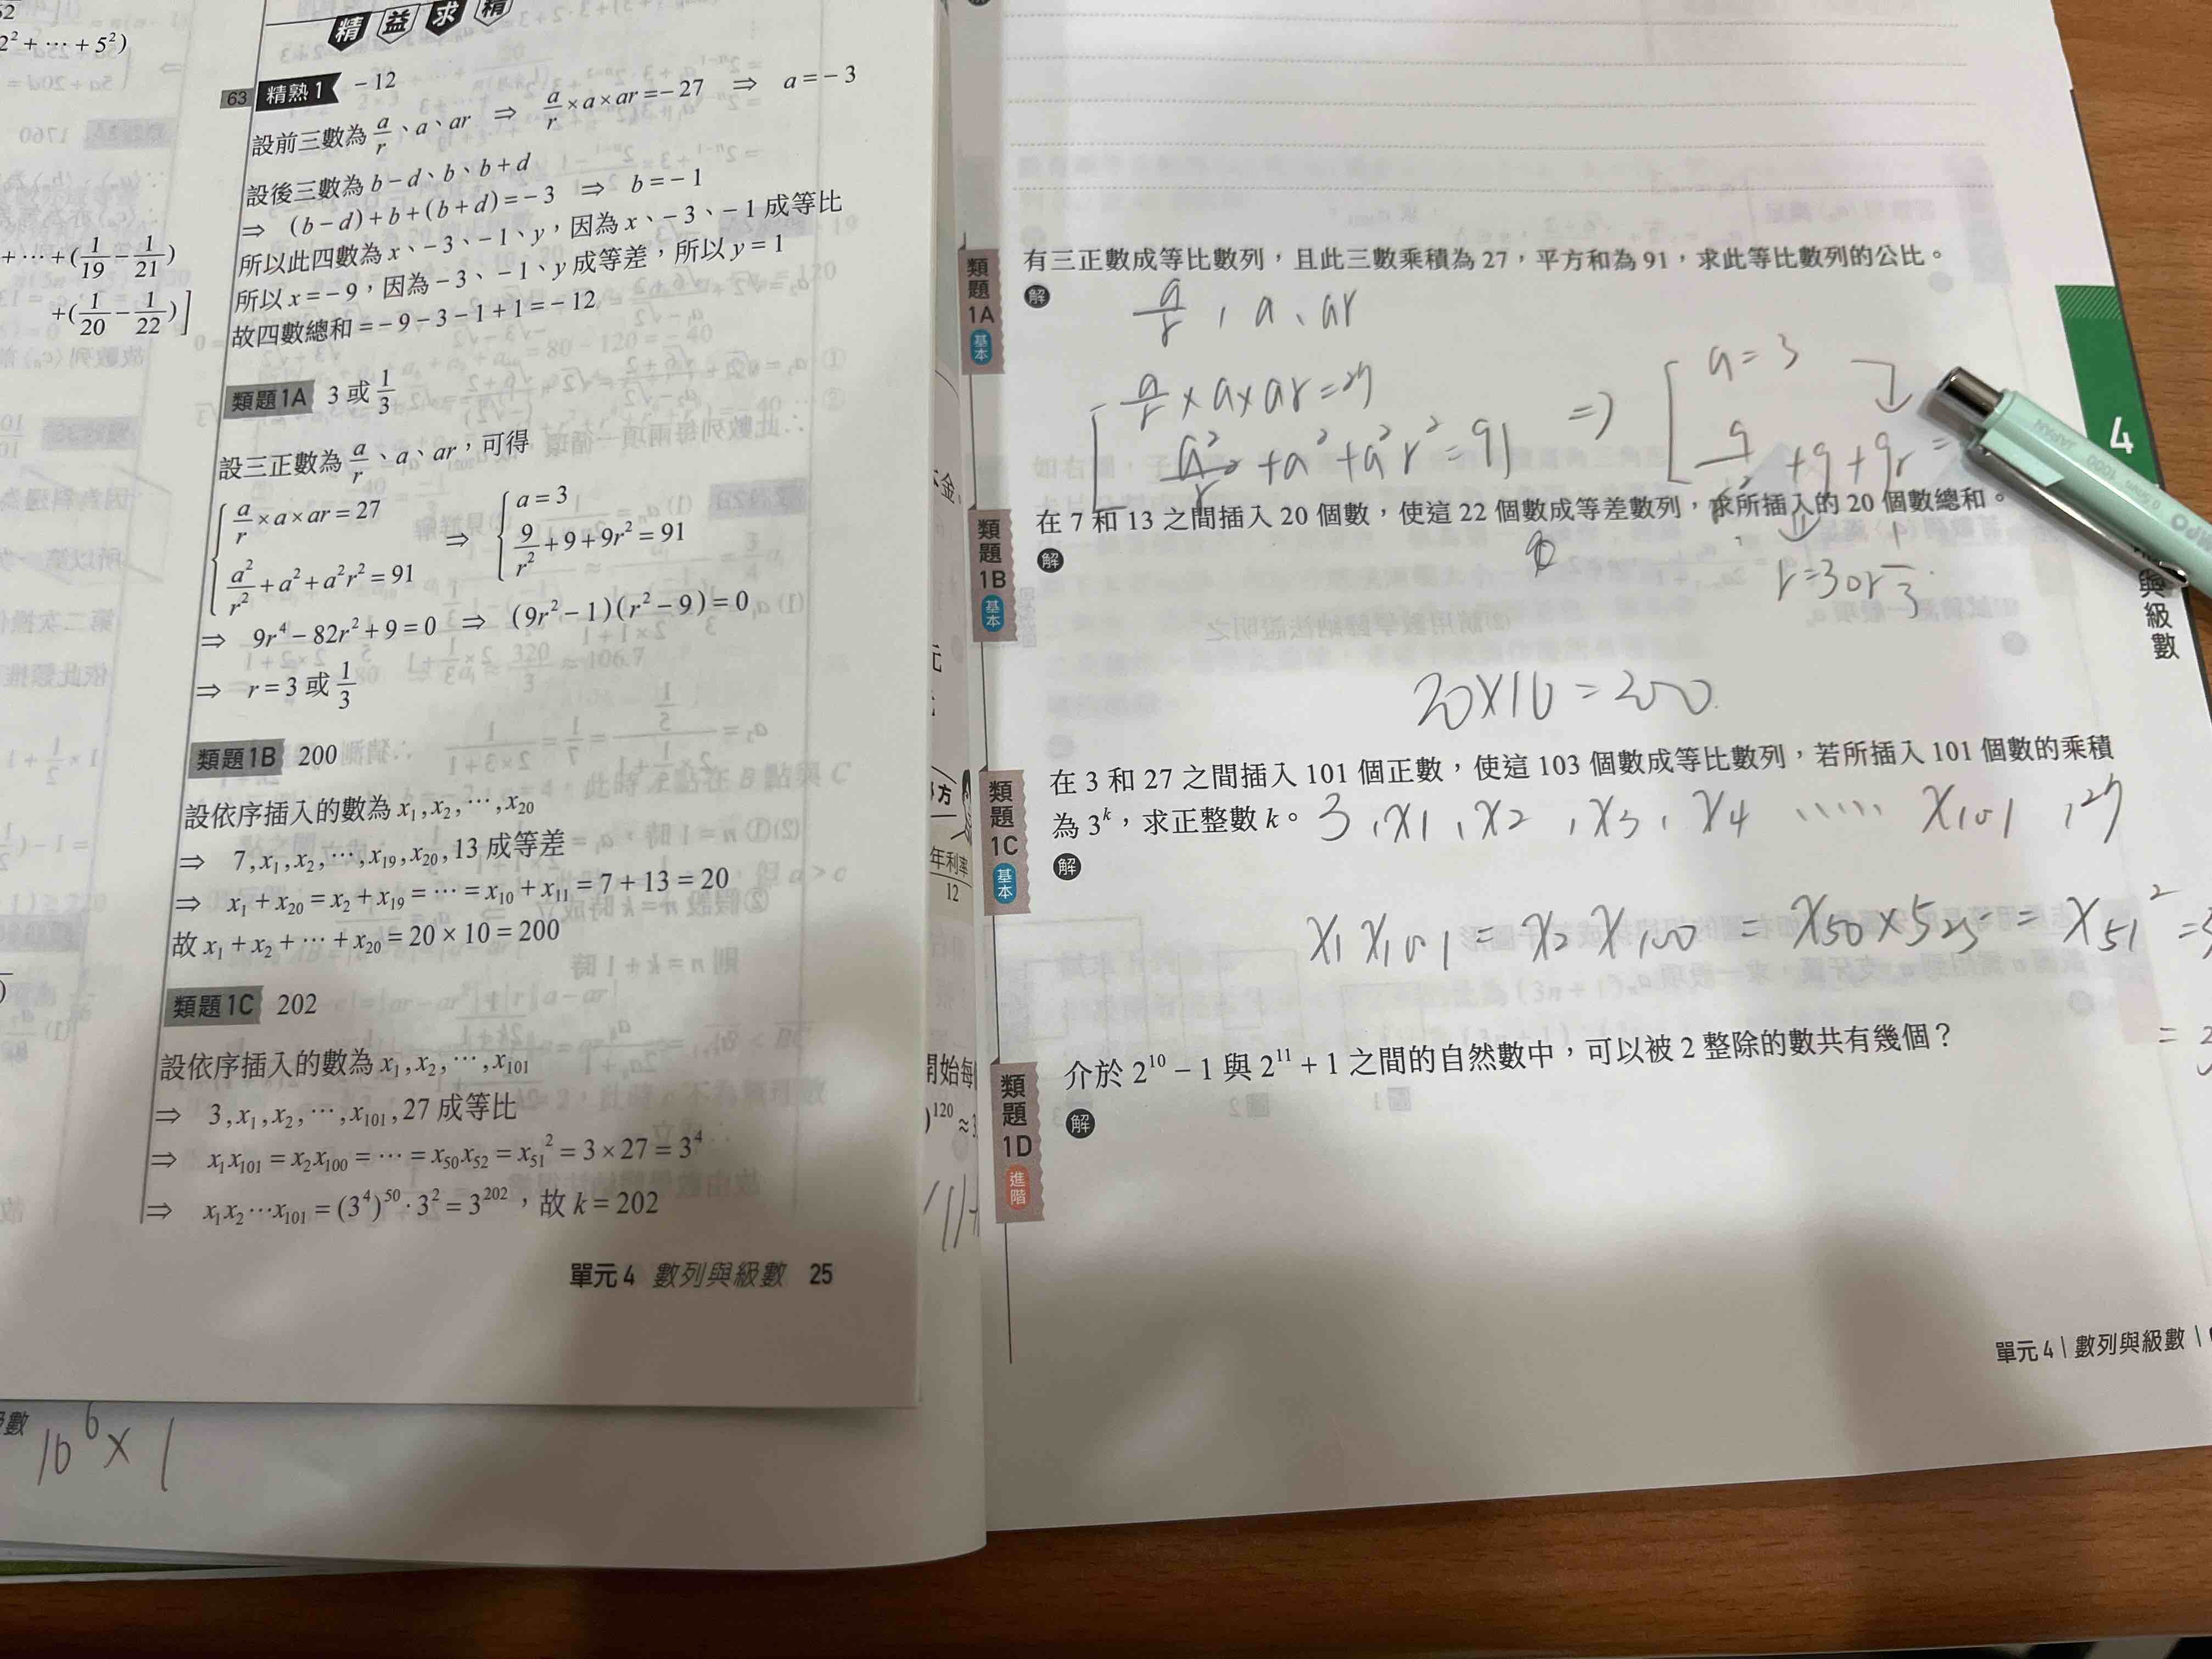 2²+⋯+5²)
+⋯+(1/19−1/21)
+(1/20−1/22)]
精益求精
63 精熟1 −12
設前三數為 a/r、a、ar ⇒ a/r×a×ar=−27 ⇒ a=−3
設後三數為 b−d、b、b+d
⇒ (b−d)+b+(b+d)=−3 ⇒ b=−1
所以此四數為 x、−3、−1、y，因為 x、−3、−1 成等比
所以 x=−9，因為 −3、−1、y 成等差，所以 y=1
故四數總和=−9−3−1+1=−12
類題1A 3 或 1/3
設三正數為 a/r、a、ar，可得
{ a/r×a×ar=27 ⇒ { a=3
a²/r²+a²+a²r²=91 9/r²+9+9r²=91
⇒ 9r⁴−82r²+9=0 ⇒ (9r²−1)(r²−9)=0
⇒ r=3 或 1/3
類題1B 200
設依序插入的數為 x₁,x₂,⋯,x₂₀
⇒ 7,x₁,x₂,⋯,x₁₉,x₂₀,13 成等差
⇒ x₁+x₂₀=x₂+x₁₉=⋯=x₁₀+x₁₁=7+13=20
故 x₁+x₂+⋯+x₂₀=20×10=200
類題1C 202
設依序插入的數為 x₁,x₂,⋯,x₁₀₁
⇒ 3,x₁,x₂,⋯,x₁₀₁,27 成等比
⇒ x₁x₁₀₁=x₂x₁₀₀=⋯=x₅₀x₅₂=x₅₁²=3×27=3⁴
⇒ x₁x₂⋯x₁₀₁=(3⁴)⁵⁰·3²=3²⁰²，故 k=202
單元4 數列與級數 25
10⁶×1
年利率
12
開始每
類題1A 基本
有三正數成等比數列，且此三數乘積為 27，平方和為 91，求此等比數列的公比。
解
a/r , a、ar
a/r×a×ar=27 ⇒ a=3
a²/r²+a²+a²r²=91
r=3or 1/3
類題1B 基本
在 7 和 13 之間插入 20 個數，使這 22 個數成等差數列，求所插入的 20 個數總和。
解
20×10=200
類題1C 基本
在 3 和 27 之間插入 101 個正數，使這 103 個數成等比數列，若所插入 101 個數的乘積
為 3ᵏ，求正整數 k。
3,x1,x2,x3,x4 ⋯⋯ x101,27
解
x1x101=x2x100=x50×525=x51²=
類題1D 進階
介於 2¹⁰−1 與 2¹¹+1 之間的自然數中，可以被 2 整除的數共有幾個？
解
4
與級數
單元4|數列與級數|